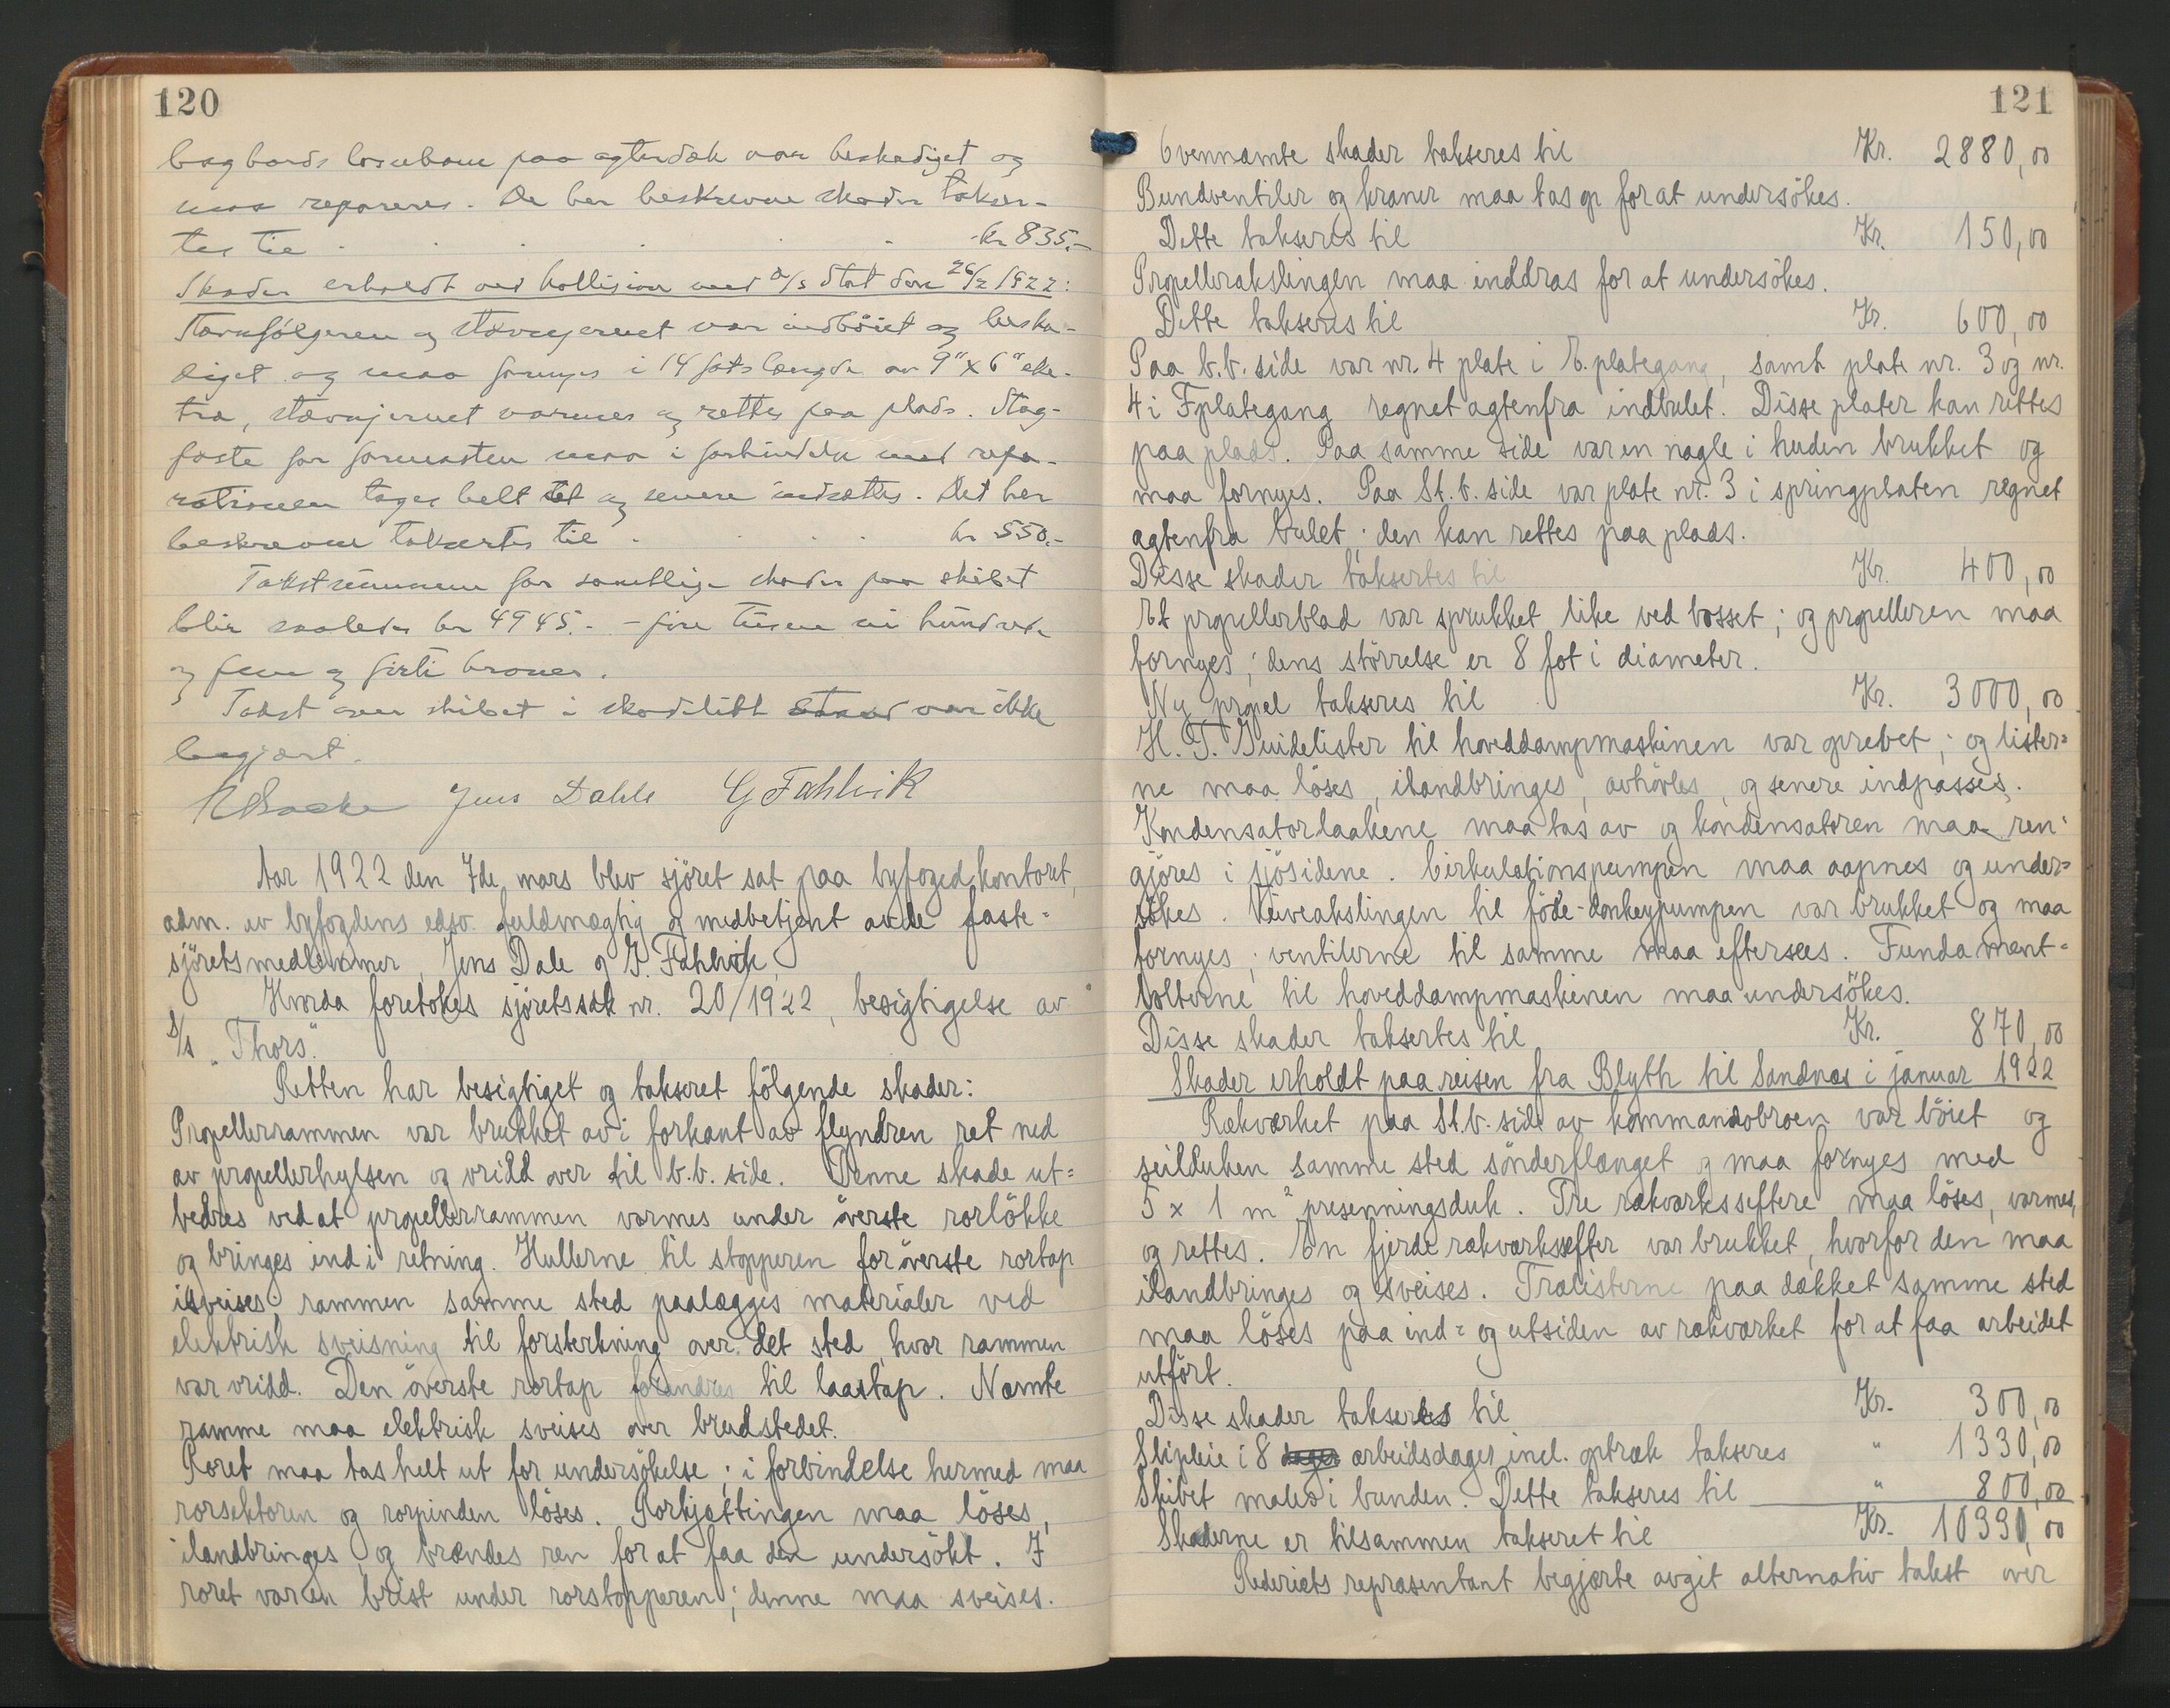 120
bagbords lossebom paa agterdæk var beskadiget og
maa repareres. De her beskrevne skader takser-
tes til . . . . . kr 835.-
Skader erholdt ved kollision med D/S Stat den 26/2 1922:
Stevnfølgeren og stævnjernet var indbøiet og beska-
diget og maa fornyes i 14 fots længde av 9" x 6" eke-
tra, stævnjernet varmes og rettes paa plads. Stag-
fæste for formasten maa i forbindelse med repa-
rationen tages helt løst og senere indsættes. Det her
beskrevne taksertes til . . . . kr 550.-
Takstsummen for samtlige skader paa skibet
blir saaledes kr 4945.- - fire tusen ni hundrede
og fem og firti kroner.
Takst over skibet i skadelidt stand var ikke
begjært.
Jens Dahle G Fahlvik
Aar 1922 den 7de mars blev sjöret sat paa byfogedkontoret,
adm. av byfogdens edsv. fuldmægtig og medbetjent av de faste-
sjöretsmedlemmer, Jens Dale og G. Fahlvik.
Hvorda foretokes sjöretssak nr. 20/1922, besigtigelse av
D/s "Thors".
Retten har besigtiget og takseret fölgende skader:
Propellerrammen var brukket av i forkant av flyndren ret ned
av propellerhylsen og vridd over til b.b. side. Denne skade ut=
bedres ved at propellerrammen varmes under överste rorlökke
og bringes ind i retning. Hullerne til stopperen for överste rortap
isveises; rammen samme sted paalægges materialer ved
elektrisk sveisning til forsterkning over det sted, hvor rammen
var vridd. Den överste rortap forandres til laastap. Nævnte
ramme maa elektrisk sveises over brudstedet.
Roret maa tas helt ut for undersökelse; i forbindelse hermed maa
rorsektoren og rorpinden löses. Rorkjættingen maa löses,
ilandbringes og brændes ren for at faa den undersökt. I
roret var en brist under rorstopperen; denne maa sveises.
121
Ovennævnte skader takseres til Kr. 2880,00
Bundventiler og kraner maa tas op for at undersökes.
Dette takseres til Kr. 150,00
Propellerakslingen maa inddras for at undersökes.
Dette takseres til Kr. 600,00
Paa b.b. side var nr. 4 plate i E. plategang, samt plate nr. 3 og nr.
4 i F plategang regnet agtenfra indbulet. Disse plater kan rettes
paa plads. Paa samme side var en nagle i huden brukket og
maa fornyes. Paa St. b. side var plate nr. 3 i springplaten regnet
agtenfra bulet; den kan rettes paa plads.
Disse skader taksertes til Kr. 400,00
Et propellerblad var sprukket like ved bosset; og propelleren maa
fornyes; dens störrelse er 8 fot i diameter.
Ny propel takseres til Kr. 3000,00
H. T. Guidelister til hoveddampmaskinen var oprevet; og lister=
ne maa löses, ilandbringes, avhövles, og senere indpasses.
Kondensatorlaakene maa tas av og kondensatoren maa ren-
gjöres i sjösidene. Cirkulationspumpen maa aapnes og under=
sökes. Veiveakslingen til föde-donkeypumpen var brukket og maa
fornyes; ventilerne til samme maa eftersees. Fundament=
bolterne til hoveddampmaskinen maa undersökes.
Disse skader taksertes til Kr. 870,00
Skader erholdt paa reisen fra Blyth til Sandnæs i januar 1922
Rækværket paa St.b. side av kommandobroen var böiet og
seilduken samme sted sönderflænget og maa fornyes med
5 x 1 m² presenningsduk. Tre rækværksseftere maa löses, varmes,
og rettes. En fjerde rækværksefter var brukket, hvorfor den maa
ilandbringes og sveises. Trælisterne paa dækket samme sted
maa löses paa ind= og utsiden av rækværket for at faa arbeidet
utfört.
Disse skader takseres til Kr. 300,00
Slipleie i 8 arbeidsdager incl. optræk takseres " 1330,00
Skibet males i bunden. Dette takseres til " 800,00
Skaderne er tilsammen takseret til Kr. 10330,00
Rederiets repræsentant begjærte avgit alternativ takst over